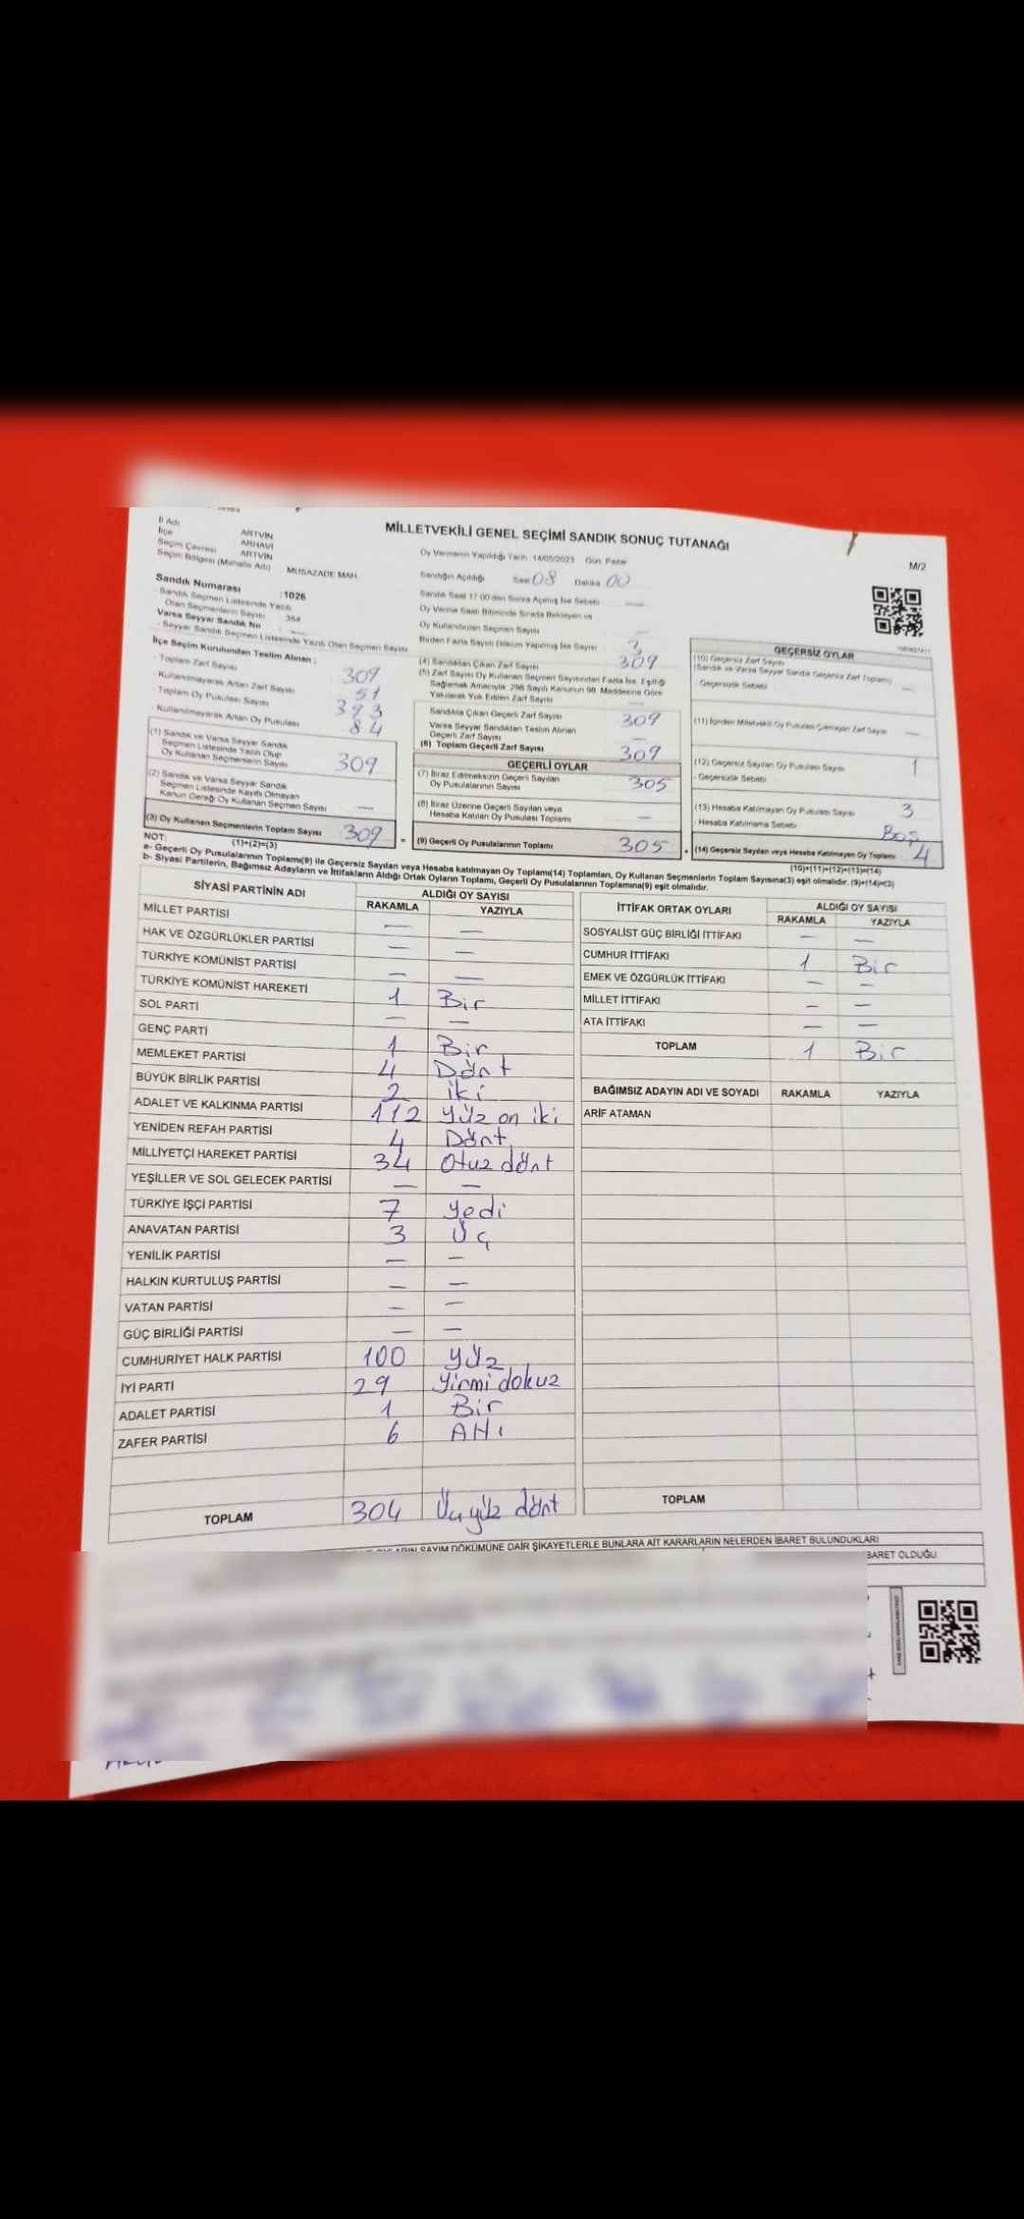 MİLLETVEKİLİ GENEL SEÇİMİ SANDIK SONUÇ TUTANAĞI
M/2
İl Adı ARTVİN
İlçe ARHAVİ
Seçim Çevresi ARTVİN
Seçim Bölgesi (Mahalle Adı) MUSAZADE MAH.
Oy Vermenin Yapıldığı Tarih :14/05/2023 Gün: Pazar
Sandığın Açıldığı Saat 08 Dakika 00
Sandık Saat 17.00'den Sonra Açılmış İse Sebebi —
Oy Verme Saati Bitiminde Sırada Bekleyen ve
Oy Kullandırılan Seçmen Sayısı —
Birden Fazla Sayım Döküm Yapılmış İse Sayısı
Sandık Numarası :1026
- Sandık Seçmen Listesinde Yazılı
Olan Seçmenlerin Sayısı 354
Varsa Seyyar Sandık No
- Seyyar Sandık Seçmen Listesinde Yazılı Olan Seçmen Sayısı
İlçe Seçim Kurulundan Teslim Alınan :
- Toplam Zarf Sayısı 309
- Kullanılmayarak Artan Zarf Sayısı 51
- Toplam Oy Pusulası Sayısı 393
- Kullanılmayarak Artan Oy Pusulası 84
(1) Sandık ve Varsa Seyyar Sandık
Seçmen Listesinde Yazılı Olup
Oy Kullanan Seçmenlerin Sayısı 309
(2) Sandık ve Varsa Seyyar Sandık
Seçmen Listesinde Kayıtlı Olmayan
Kanun Gereği Oy Kullanan Seçmen Sayısı —
(3) Oy Kullanan Seçmenlerin Toplam Sayısı 309
(1)+(2)=(3)
(4) Sandıktan Çıkan Zarf Sayısı 309
(5) Zarf Sayısı Oy Kullanan Seçmen Sayısından Fazla İse, Eşitliği
Sağlamak Amacıyla, 298 Sayılı Kanunun 98. Maddesine Göre
Yakılarak Yok Edilen Zarf Sayısı —
Sandıkta Çıkan Geçerli Zarf Sayısı 309
Varsa Seyyar Sandıktan Teslim Alınan
Geçerli Zarf Sayısı —
(6) Toplam Geçerli Zarf Sayısı 309
GEÇERLİ OYLAR
(7) İtiraz Edilmeksizin Geçerli Sayılan
Oy Pusulalarının Sayısı 305
(8) İtiraz Üzerine Geçerli Sayılan veya
Hesaba Katılan Oy Pusulası Toplamı —
(9) Geçerli Oy Pusulalarının Toplamı 305
GEÇERSİZ OYLAR
(10) Geçersiz Zarf Sayısı
(Sandık ve Varsa Seyyar Sandık Geçersiz Zarf Toplamı) —
- Geçersizlik Sebebi
(11) İçinden Milletvekili Oy Pusulası Çıkmayan Zarf Sayısı —
(12) Geçersiz Sayılan Oy Pusulası Sayısı 1
- Geçersizlik Sebebi
(13) Hesaba Katılmayan Oy Pusulası Sayısı 3
- Hesaba Katılmama Sebebi Boş
(14) Geçersiz Sayılan veya Hesaba Katılmayan Oy Toplamı 4
(10)+(11)+(12)+(13)=(14)
NOT:
a- Geçerli Oy Pusulalarının Toplamı(9) ile Geçersiz Sayılan veya Hesaba katılmayan Oy Toplamı(14) Toplamları, Oy Kullanan Seçmenlerin Toplam Sayısına(3) eşit olmalıdır. (9)+(14)=(3)
b- Siyasi Partilerin, Bağımsız Adayların ve İttifakların Aldığı Ortak Oyların Toplamı, Geçerli Oy Pusulalarının Toplamına(9) eşit olmalıdır.
SİYASİ PARTİNİN ADI ALDIĞI OY SAYISI
RAKAMLA YAZIYLA
MİLLET PARTİSİ — —
HAK VE ÖZGÜRLÜKLER PARTİSİ — —
TÜRKİYE KOMÜNİST PARTİSİ — —
TÜRKİYE KOMÜNİST HAREKETİ 1 Bir
SOL PARTİ — —
GENÇ PARTİ 1 Bir
MEMLEKET PARTİSİ 4 Dört
BÜYÜK BİRLİK PARTİSİ 2 iki
ADALET VE KALKINMA PARTİSİ 112 Yüz on iki
YENİDEN REFAH PARTİSİ 4 Dört
MİLLİYETÇİ HAREKET PARTİSİ 34 Otuz dört
YEŞİLLER VE SOL GELECEK PARTİSİ — —
TÜRKİYE İŞÇİ PARTİSİ 7 Yedi
ANAVATAN PARTİSİ 3 Üç
YENİLİK PARTİSİ — —
HALKIN KURTULUŞ PARTİSİ — —
VATAN PARTİSİ — —
GÜÇ BİRLİĞİ PARTİSİ — —
CUMHURİYET HALK PARTİSİ 100 Yüz
İYİ PARTİ 29 Yirmi dokuz
ADALET PARTİSİ 1 Bir
ZAFER PARTİSİ 6 Altı
TOPLAM 304 Üçyüz dört
İTTİFAK ORTAK OYLARI ALDIĞI OY SAYISI
RAKAMLA YAZIYLA
SOSYALİST GÜÇ BİRLİĞİ İTTİFAKI — —
CUMHUR İTTİFAKI 1 Bir
EMEK VE ÖZGÜRLÜK İTTİFAKI — —
MİLLET İTTİFAKI — —
ATA İTTİFAKI — —
TOPLAM 1 Bir
BAĞIMSIZ ADAYIN ADI VE SOYADI RAKAMLA YAZIYLA
ARİF ATAMAN
TOPLAM
SAYIM DÖKÜMÜNE DAİR ŞİKAYETLERLE BUNLARA AİT KARARLARIN NELERDEN İBARET BULUNDUKLARI
İBARET OLDUĞU